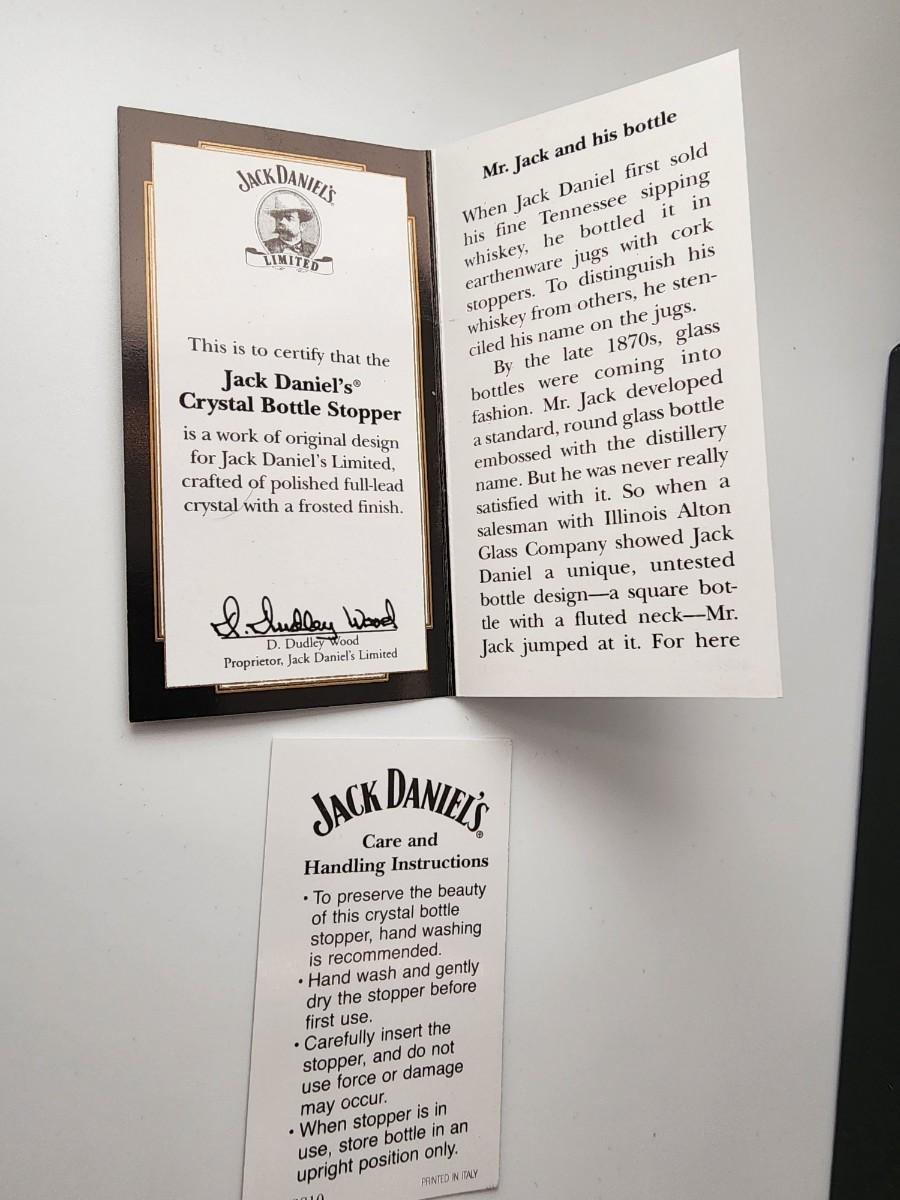 JACK DANIEL'S
LIMITED
This is to certify that the
Jack Daniel's®
Crystal Bottle Stopper
is a work of original design
for Jack Daniel's Limited,
crafted of polished full-lead
crystal with a frosted finish.
D. Dudley Wood
D. Dudley Wood
Proprietor, Jack Daniel's Limited
Mr. Jack and his bottle
When Jack Daniel first sold
his fine Tennessee sipping
whiskey, he bottled it in
earthenware jugs with cork
stoppers. To distinguish his
whiskey from others, he sten-
ciled his name on the jugs.
By the late 1870s, glass
bottles were coming into
fashion. Mr. Jack developed
a standard, round glass bottle
embossed with the distillery
name. But he was never really
satisfied with it. So when a
salesman with Illinois Alton
Glass Company showed Jack
Daniel a unique, untested
bottle design—a square bot-
tle with a fluted neck—Mr.
Jack jumped at it. For here
JACK DANIEL'S®
Care and
Handling Instructions
• To preserve the beauty
of this crystal bottle
stopper, hand washing
is recommended.
• Hand wash and gently
dry the stopper before
first use.
• Carefully insert the
stopper, and do not
use force or damage
may occur.
• When stopper is in
use, store bottle in an
upright position only.
PRINTED IN ITALY